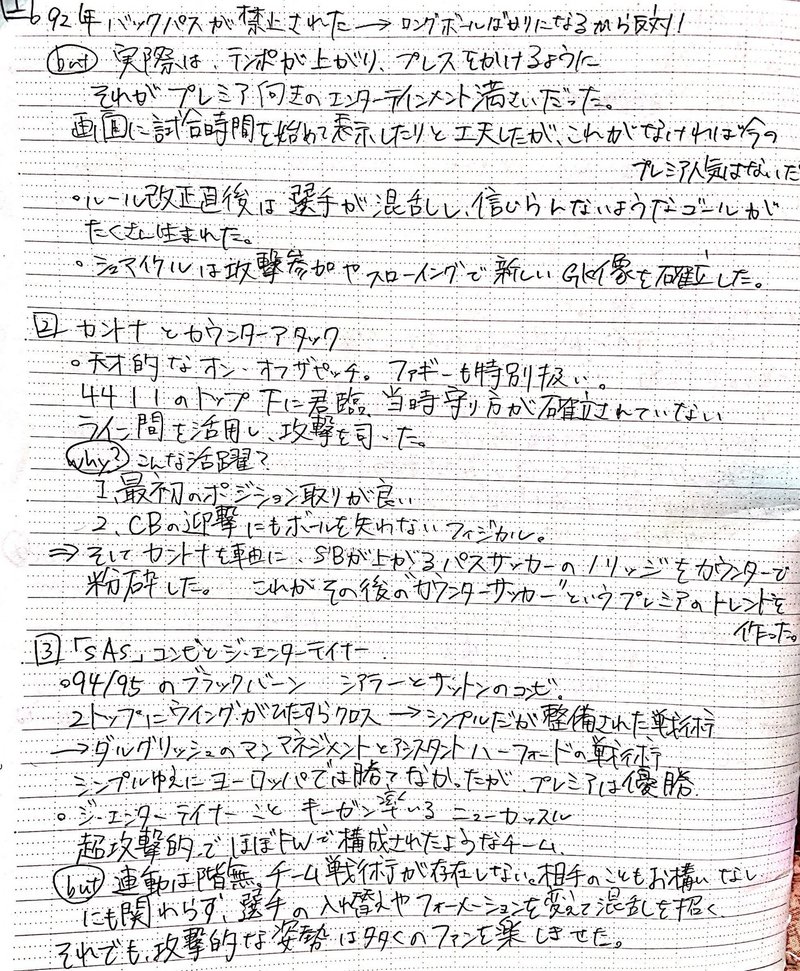 1
92年 バックパスが禁止された→ロングボールばかりになるから反対!
but 実際は、テンポが上がり、プレスをかけるように
それがプレミア向きのエンターテインメント満さいだった。
画面に試合時間を始めて表示したりと工夫したが、これがなければ今の
プレミア人気はないだ
○ルール改正直後は選手が混乱し、信じらんないようなゴールが
たくさん生まれた。
○シュマイケルは攻撃参加やスローイングで新しいGK像を確立した。
2 カントナとカウンターアタック
○天才的なオン・オフザピッチ。ファギーも特別扱い。
4411のトップ下に君臨、当時守り方が確立されていない
ライン間を活用し、攻撃を司った。
why? こんな活躍?
1、最初のポジション取りが良い
2、CBの迎撃にもボールを失わないフィジカル。
⇒そしてカントナを軸に、SBが上がるパスサッカーのノリッジをカウンターで
粉砕した。 これがその後の"カウンターサッカー"というプレミアのトレンドを
作った。
3 「SAS」コンビとジ・エンターテイナー
○94/95のブラックバーン シアラーとサットンのコンビ。
2トップにウイングがひたすらクロス→シンプルだが整備された戦術
→ダルグリッシュのマンマネジメントとアシスタントハーフォードの戦術
シンプルゆえにヨーロッパでは勝てなかったが、プレミアは優勝
○ジ・エンターテイナーことキーガン率いるニューカッスル
超攻撃的でほぼFWで構成されたようなチーム、
but 連動は皆無。チーム戦術が存在しない。相手のこともお構いなし
にも関わらず、選手の入れ替えやフォーメーションを変えて混乱を招く
それでも、攻撃的な姿勢は多くのファンを楽しませた。